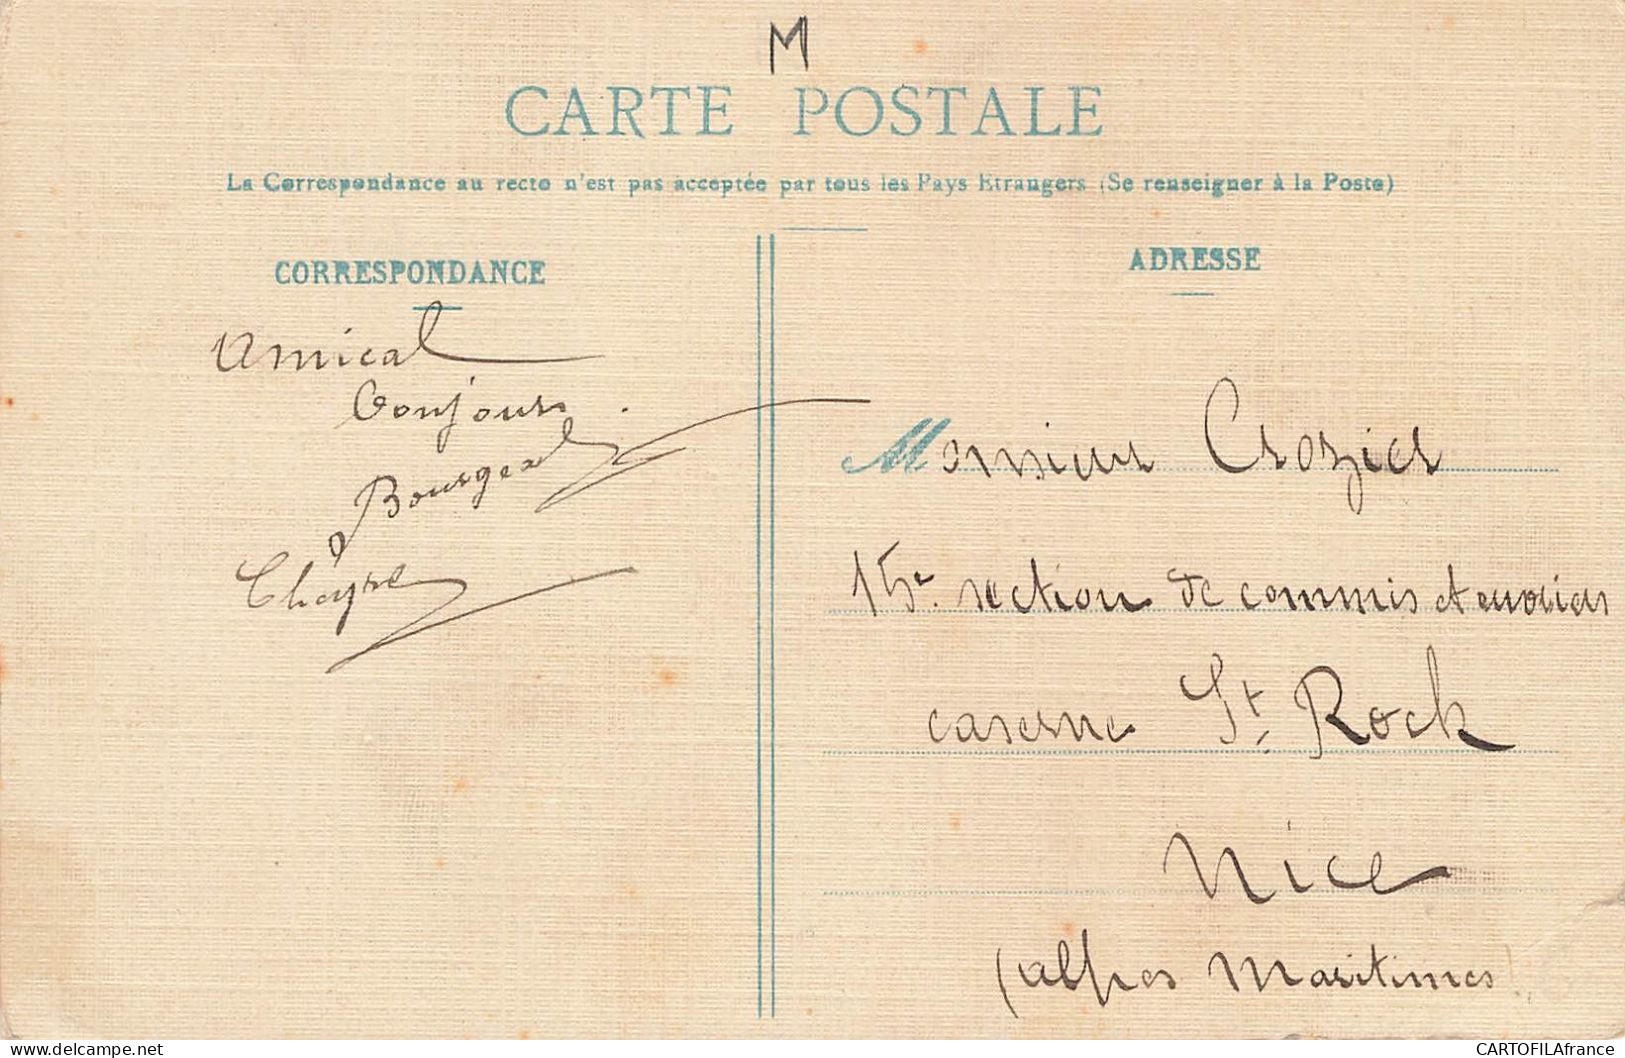 M
CARTE POSTALE
La Correspondance au recto n'est pas acceptée par tous les Pays Etrangers (Se renseigner à la Poste)
CORRESPONDANCE
Amical
Bonjour.
Bourgeat
ADRESSE
Monsieur Crozier
15e section de commis et ouvriers
caserne St. Rock
Nice
(Alpes Maritimes
delcampe.net
CARTOFILAfrance